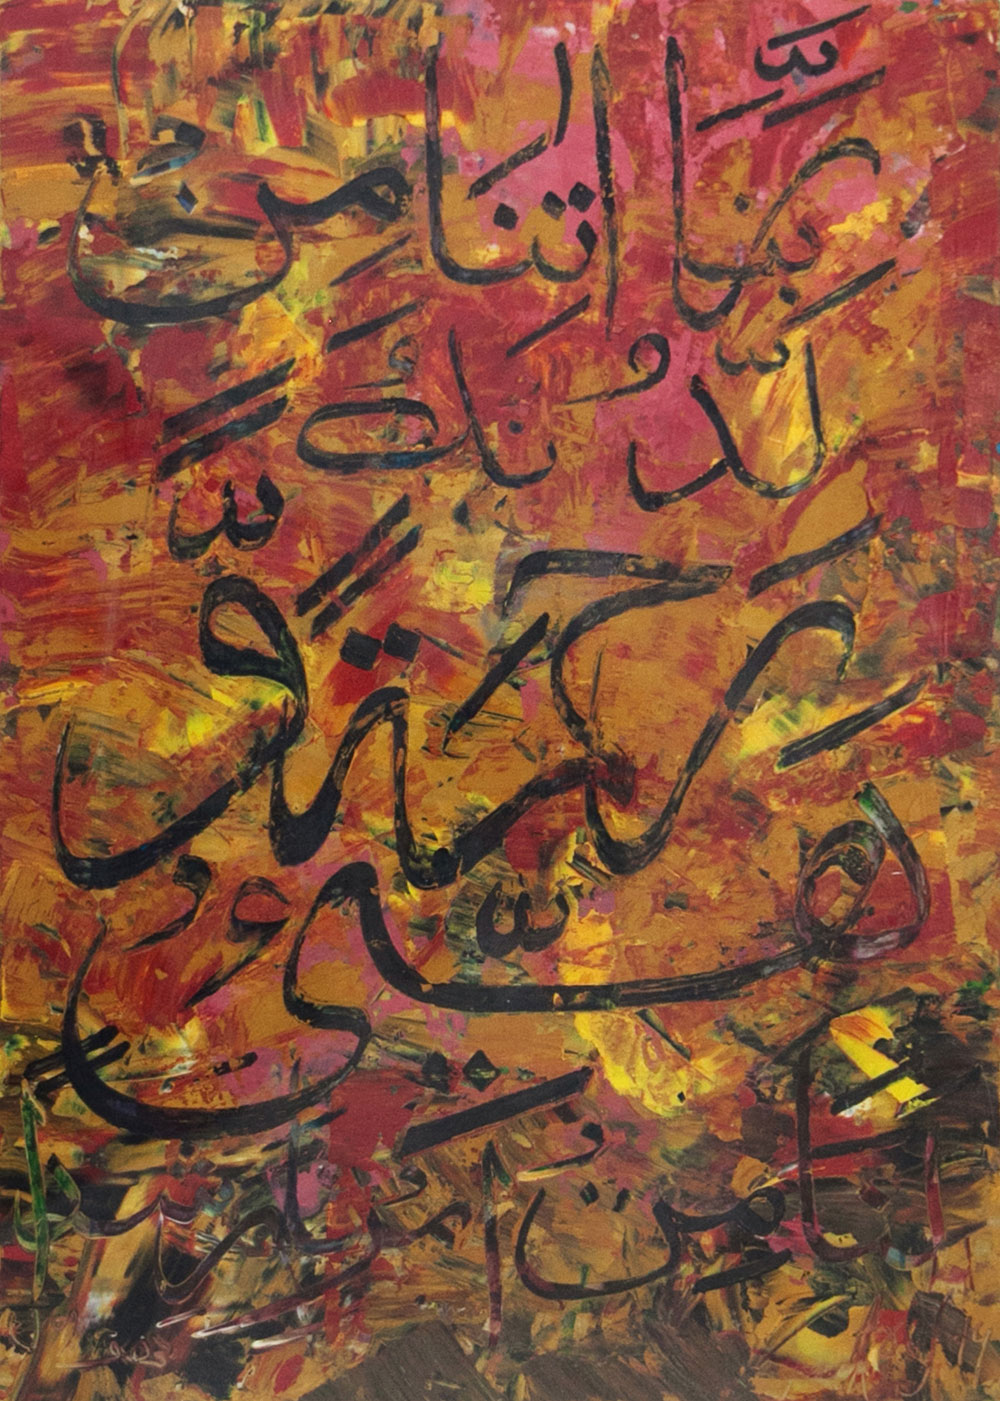 رَبَّنَا اٰتِنَا مِنْ
لَّدُنْكَ
رَحْمَةً وَّ
هَيِّئْ
لَنَا مِنْ اَمْرِنَا رَشَدًا